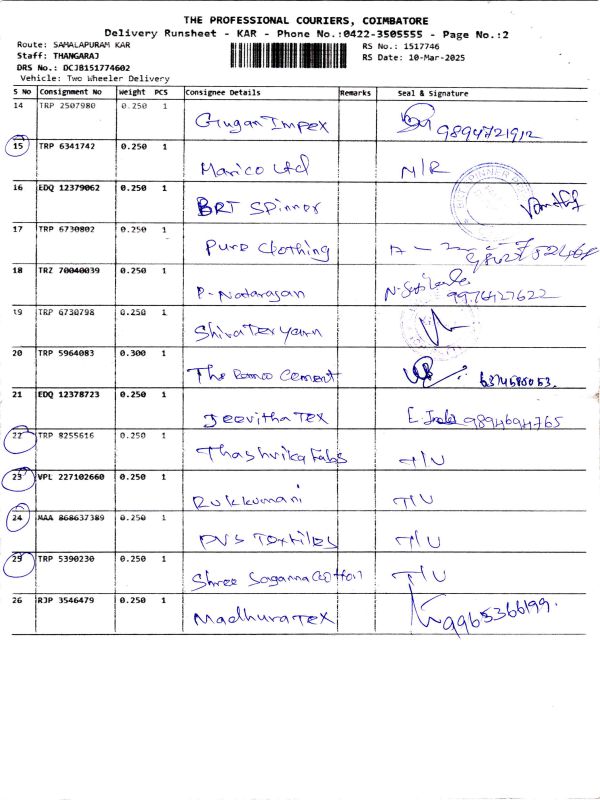 THE PROFESSIONAL COURIERS, COIMBATORE
Delivery Runsheet - KAR - Phone No.:0422-3505555 - Page No.:2
Route: SAMALAPURAM KAR
RS No.: 1517746
Staff: THANGARAJ
RS Date: 10-Mar-2025
DRS No.: DCJB151774602
Vehicle: Two Wheeler Delivery
S No Consignment No Weight PCS Consignee Details Remarks Seal & Signature
14 TRP 2507980 0.250 1 Gugan Impex 9894721912
15 TRP 6341742 0.250 1 Marico Ltd N/R
16 EDQ 12379062 0.250 1 BRT Spinner
17 TRP 6730802 0.250 1 Pure Clothing
18 TRZ 70040039 0.250 1 P. Natarajan 9976427622
19 TRP 6730798 0.250 1 Shiva Tex yarn
20 TRP 5964083 0.300 1 The Ramco Cement
21 EDQ 12378723 0.250 1 Jeevitha Tex 9894694765
22 TRP 8255616 0.250 1 Thashvika Fabs T/U
23 VPL 227102660 0.250 1 Rukkumani T/U
24 MAA 868637389 0.250 1 PVS Textiles T/U
25 TRP 5390230 0.250 1 Shree Saganna Cotton T/U
26 RJP 3546479 0.250 1 Madhura Tex 9965366199.